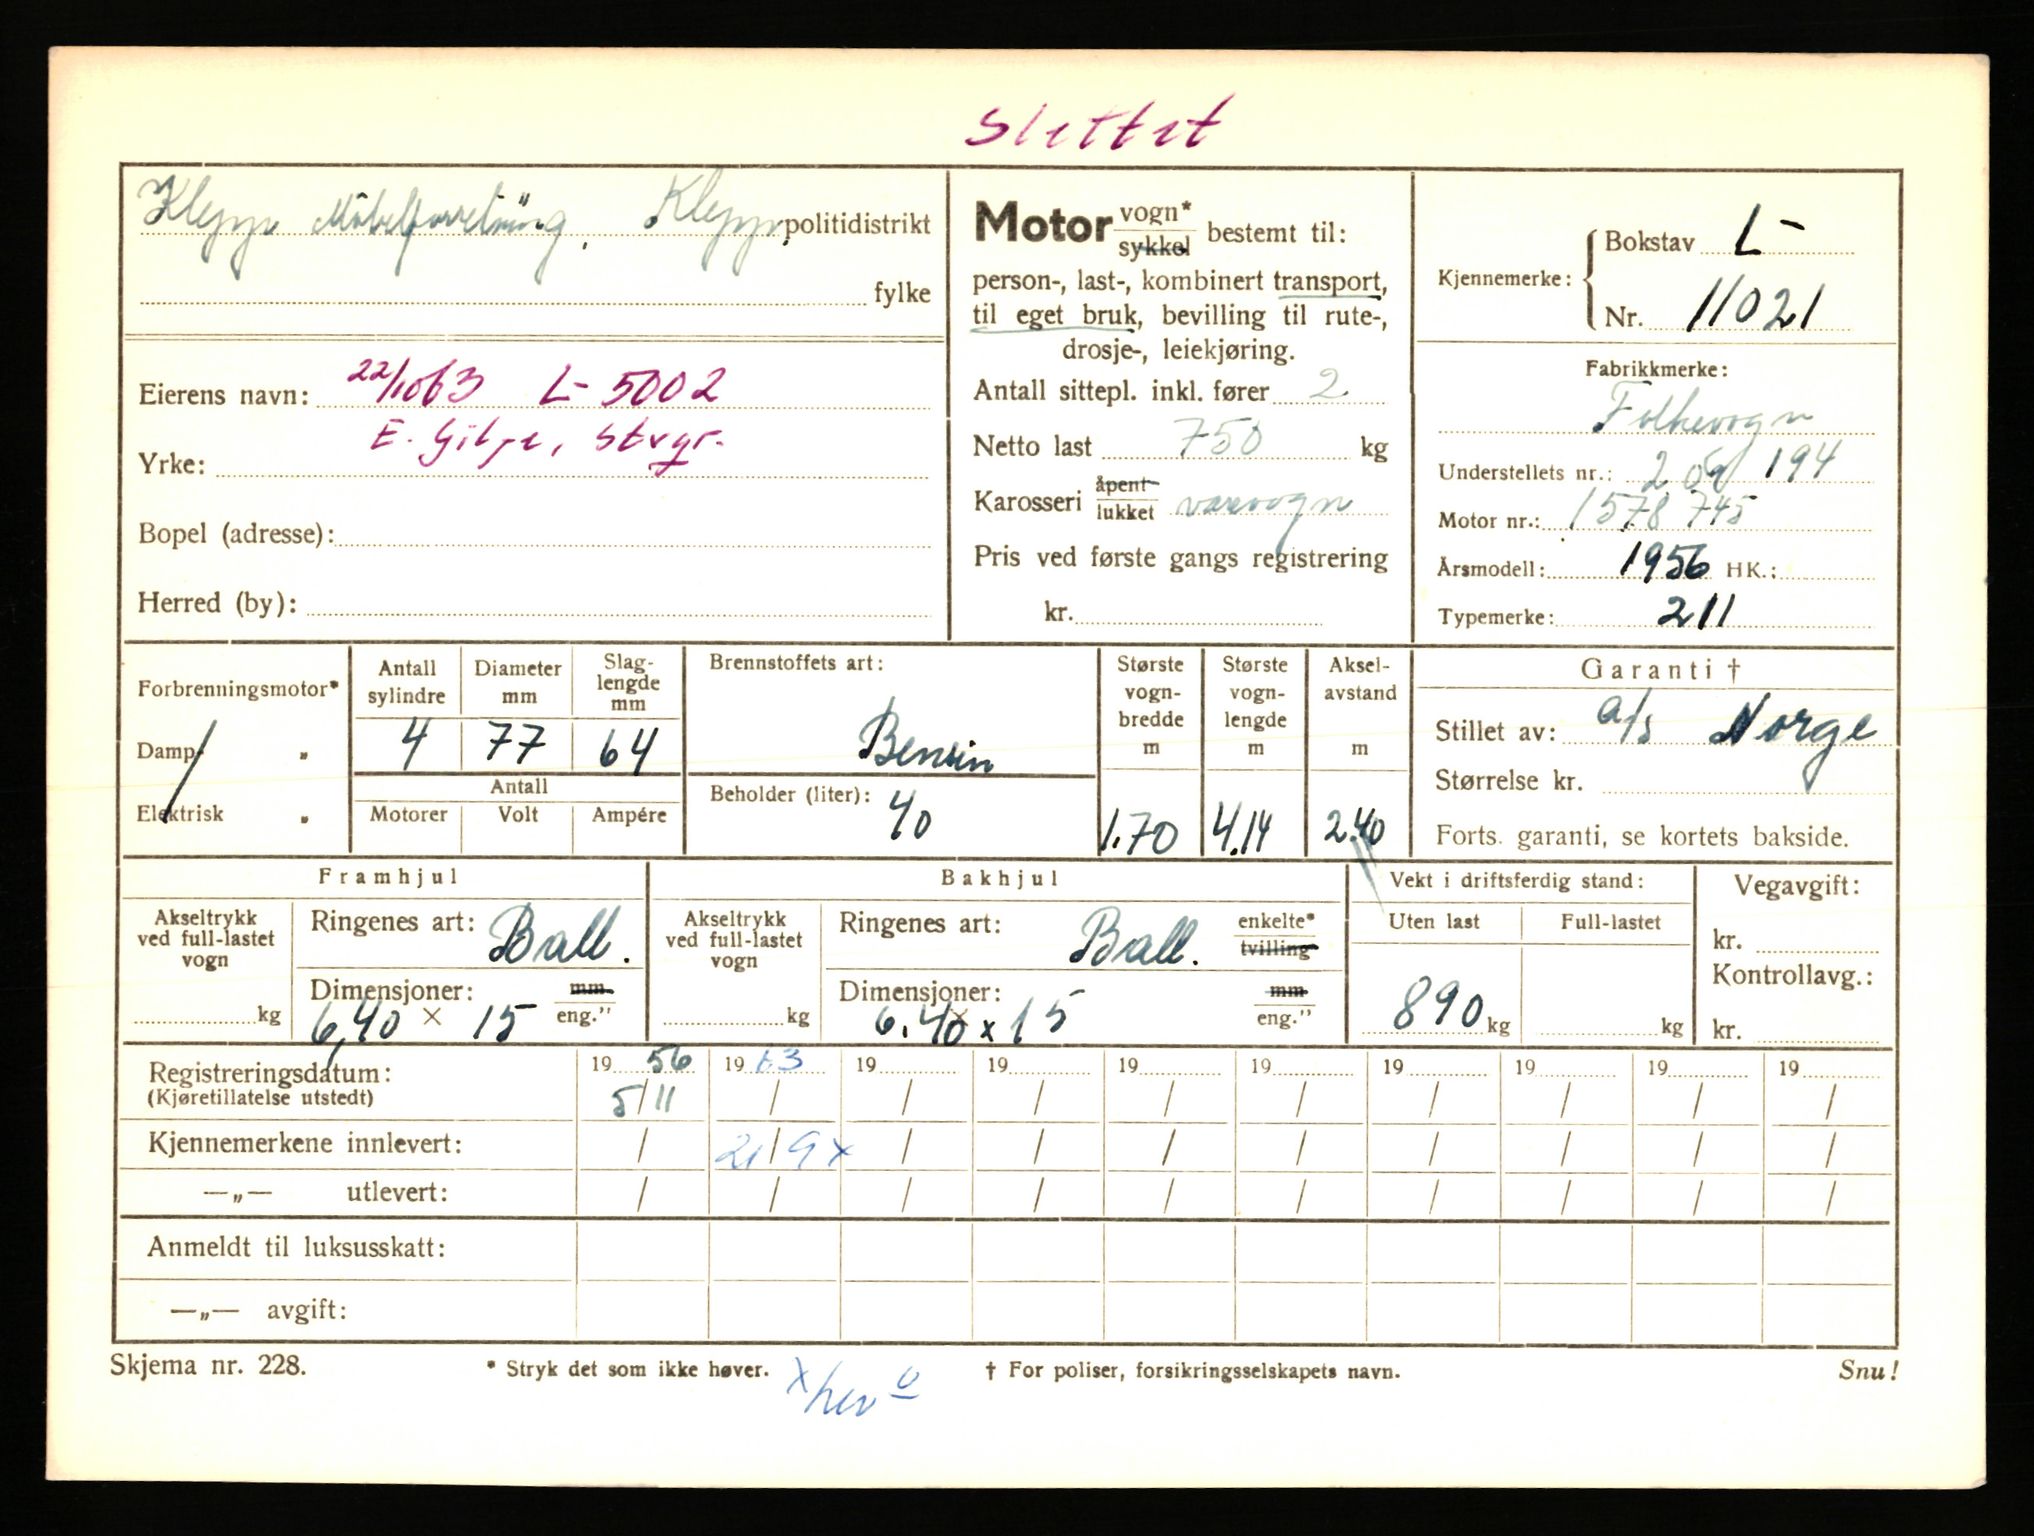 Slettet
Klepp Møbelforretning, Klepp politidistrikt
fylke
Eierens navn: 22/10 63 L-5002
E. Gilje, Stvgr.
Yrke:
Bopel (adresse):
Herred (by):
Motor vogn* sykkel bestemt til:
person-, last-, kombinert transport,
til eget bruk, bevilling til rute-,
drosje-, leiekjøring.
Antall sittepl. inkl. fører 2
Netto last 750 kg
Karosseri åpent lukket varevogn
Pris ved første gangs registrering
kr.
Kjennemerke: Bokstav L-
Nr. 11021
Fabrikkmerke:
Folkevogn
Understellets nr.: 209 194
Motor nr.: 1578 745
Årsmodell: 1956 HK.:
Typemerke: 211
Forbrenningsmotor*
Damp "
Elektrisk "
Antall sylindre 4
Diameter mm 77
Slag-lengde mm 64
Antall
Motorer Volt Ampére
Brennstoffets art:
Bensin
Beholder (liter): 40
Største vogn-bredde m 1.70
Største vogn-lengde m 4.14
Aksel-avstand m 2.40
Garanti †
Stillet av: a/s Norge
Størrelse kr.
Forts. garanti, se kortets bakside.
Framhjul
Akseltrykk ved full-lastet vogn
kg
Ringenes art: Ball.
Dimensjoner: mm
6,40 x 15 eng."
Bakhjul
Akseltrykk ved full-lastet vogn
kg
Ringenes art: Ball. enkelte* tvilling
Dimensjoner: mm
6.40 x 15 eng."
Vekt i driftsferdig stand:
Uten last Full-lastet
890 kg kg
Vegavgift:
kr.
Kontrollavg.:
kr.
Registreringsdatum: 19 56 19 63 19 19 19 19 19 19 19 19
(Kjøretillatelse utstedt) 5/11 / / / / / / / / /
Kjennemerkene innlevert: / 21/9 x / / / / / / / /
—„— utlevert: / / / / / / / / / /
Anmeldt til luksusskatt:
—„— avgift:
Skjema nr. 228. * Stryk det som ikke høver. † For poliser, forsikringsselskapets navn. Snu!